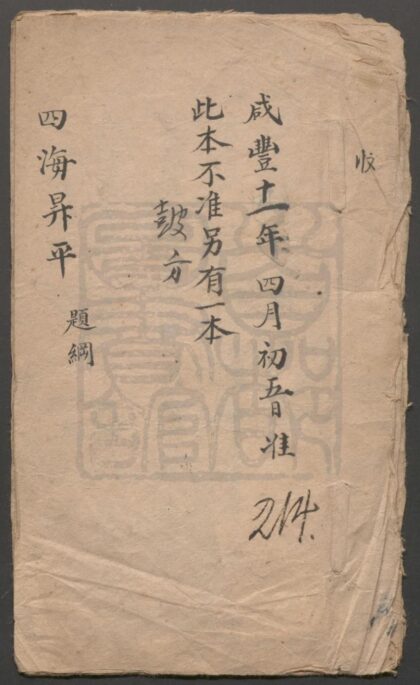 收
咸豐十一年四月初五日准
此本不准另有一本
鼓方
四海昇平 題綱
214.